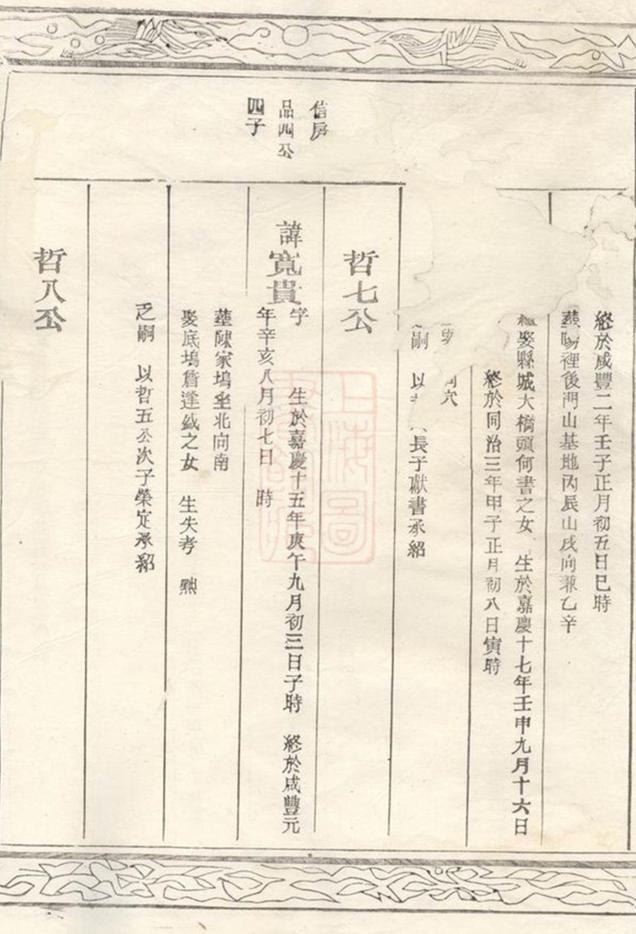 終於咸豐二年壬子正月初五日巳時
裡後門山基地丙辰山戌向兼乙辛
娶縣城大橋頭何書之女 生於嘉慶十七年壬申九月十六日
終於同治三年甲子正月初八日寅時
穴
嗣 以 長子獻書承紹
信房
品四公
四子
哲七公
諱寬貴
字 生於嘉慶十五年庚午九月初三日子時 終於咸豐元
年辛亥八月初七日 時
塟陳家塢坐北向南
娶底塢詹逢鉞之女 生失考 歿
乏嗣 以哲五公次子榮定承紹
哲八公